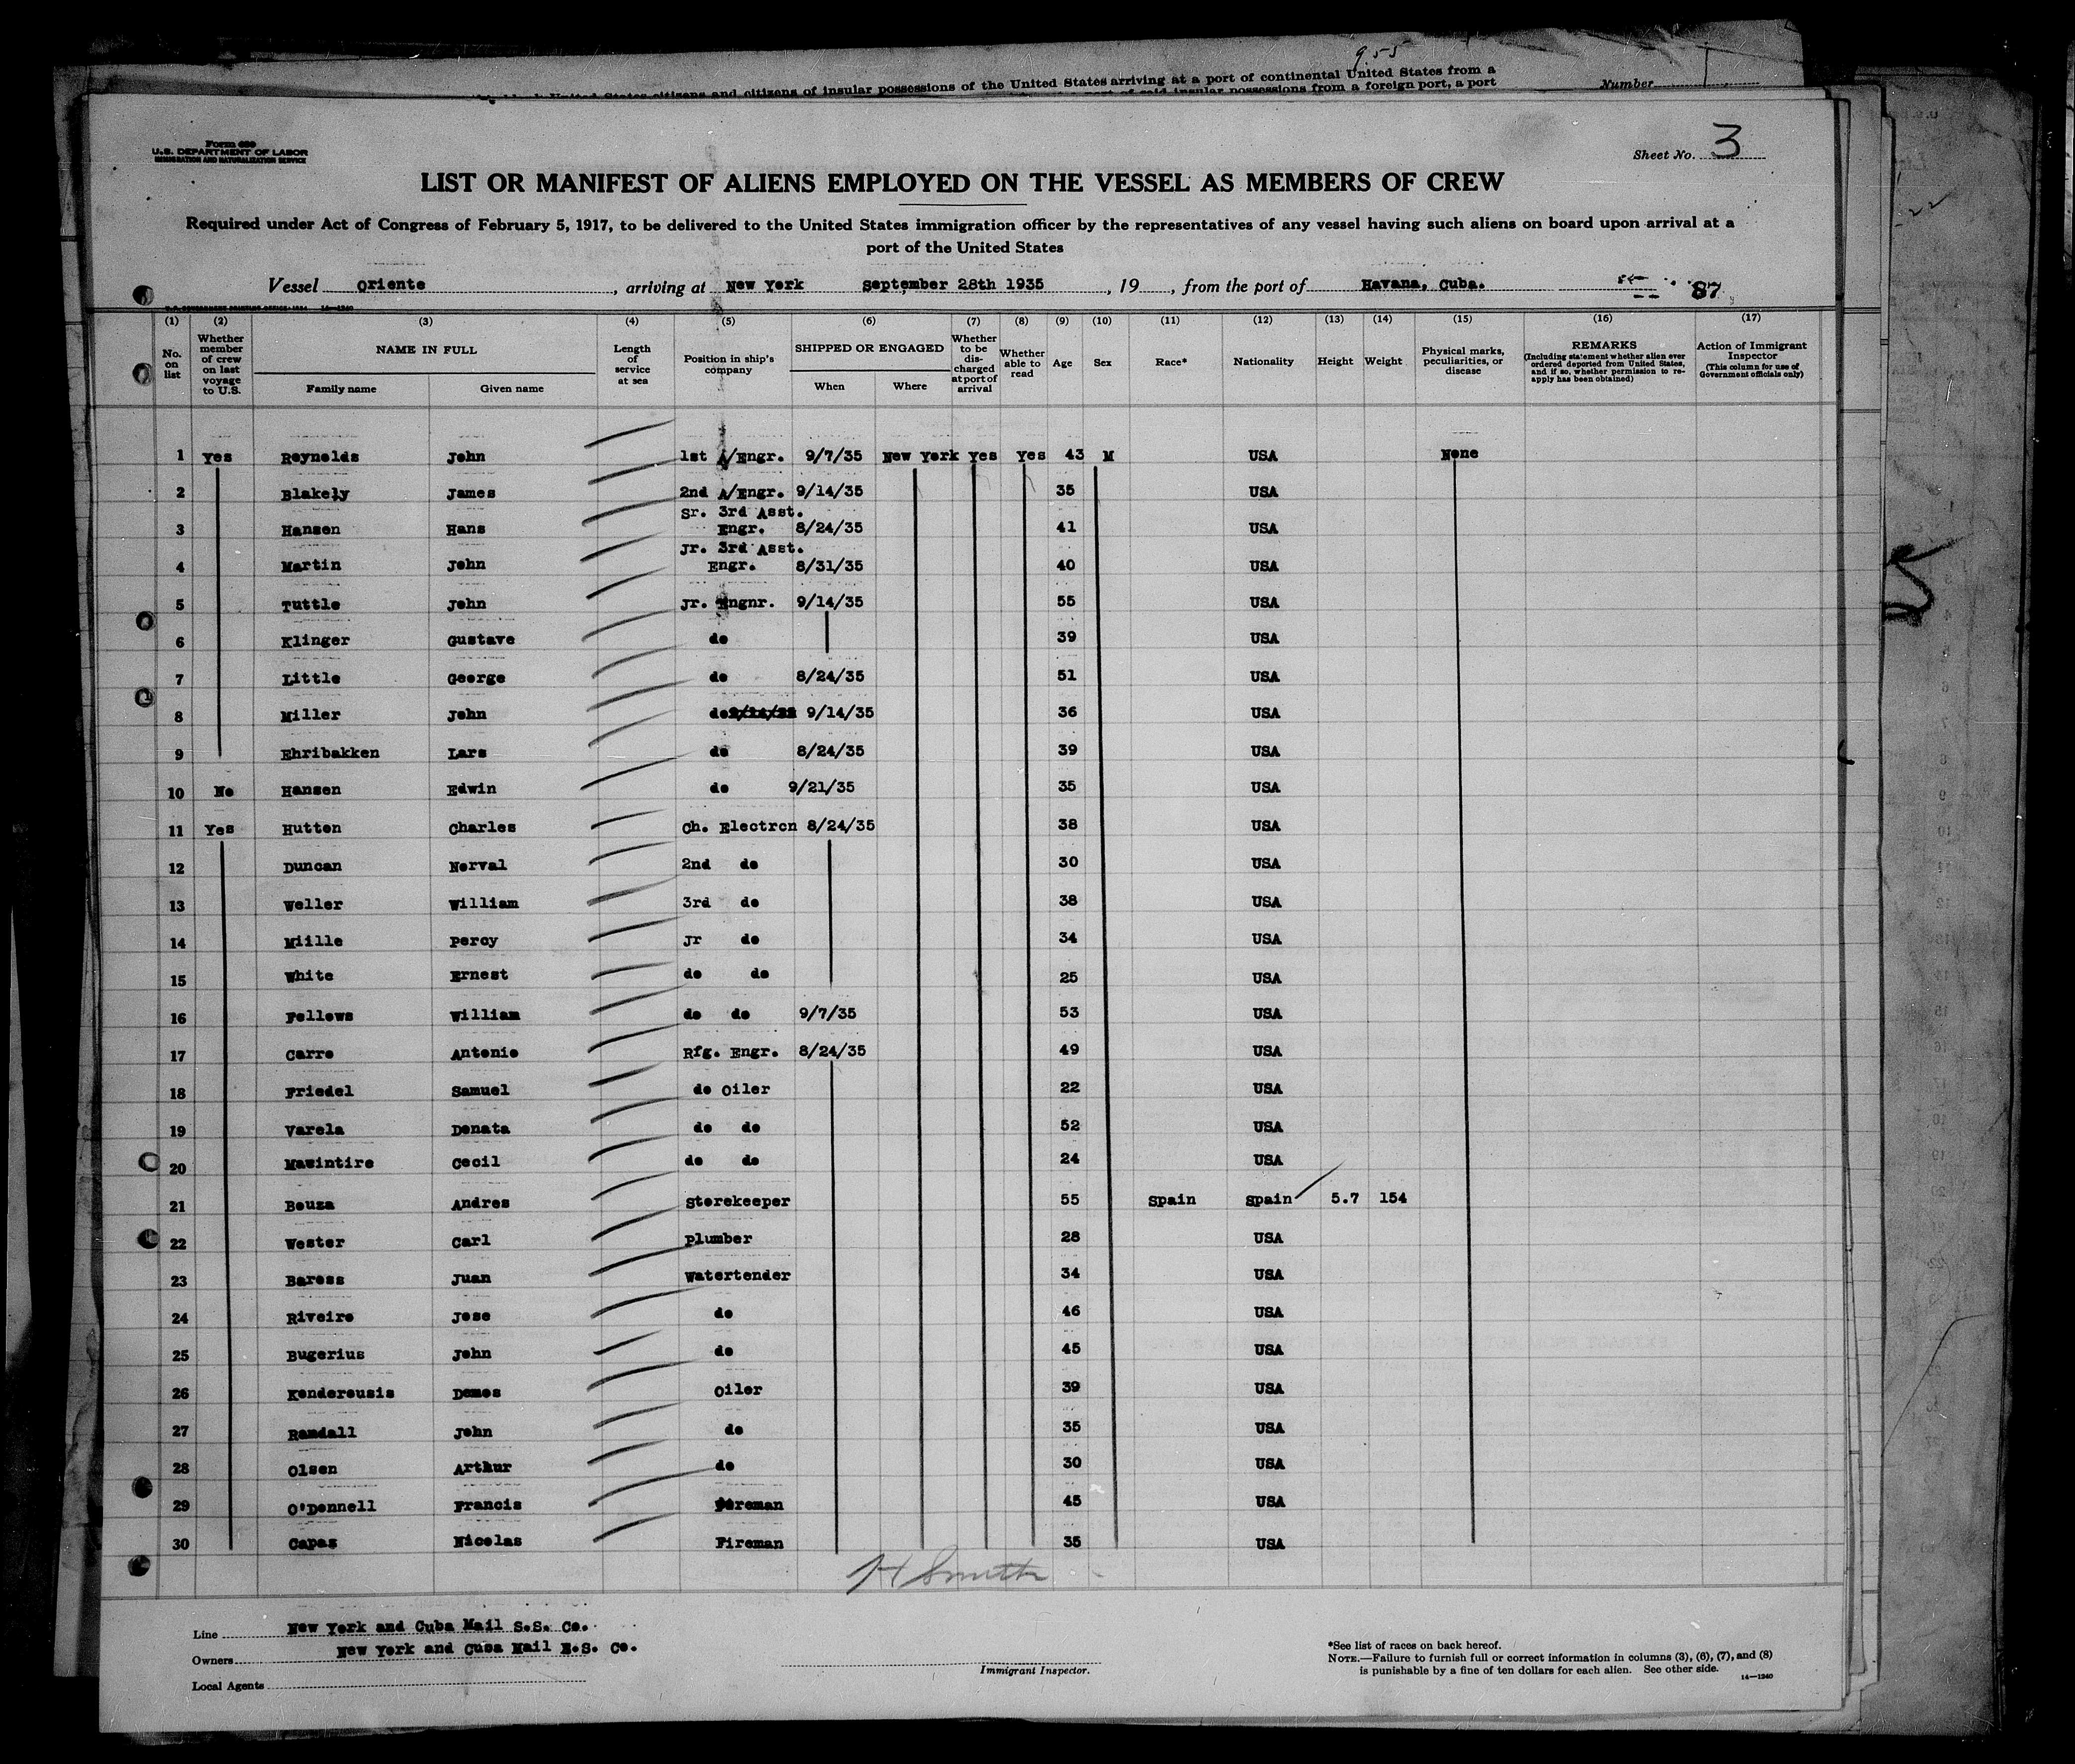 955
possessions of the United States arriving at a port of continental United States from a
Number 1
Form 689
U.S. DEPARTMENT OF LABOR
IMMIGRATION AND NATURALIZATION SERVICE
Sheet No. 3
LIST OR MANIFEST OF ALIENS EMPLOYED ON THE VESSEL AS MEMBERS OF CREW
Required under Act of Congress of February 5, 1917, to be delivered to the United States immigration officer by the representatives of any vessel having such aliens on board upon arrival at a
port of the United States
Vessel Oriente , arriving at New York September 28th 1935 , 19 , from the port of Havana, Cuba. 87
(1) (2) (3) (4) (5) (6) (7) (8) (9) (10) (11) (12) (13) (14) (15) (16) (17)
No. on list
Whether member of crew on last voyage to U.S.
NAME IN FULL
Family name Given name
Length of service at sea
Position in ship's company
SHIPPED OR ENGAGED
When Where
Whether to be discharged at port of arrival
Whether able to read
Age Sex Race* Nationality Height Weight
Physical marks, peculiarities, or disease
REMARKS
(Including statement whether alien ever ordered deported from United States, and if so, whether permission to re-apply has been obtained)
Action of Immigrant Inspector
(This column for use of Government officials only)
1 Yes Reynolds John 1st A/Engr. 9/7/35 New York Yes Yes 43 M USA None
2 Blakely James 2nd A/Engr. 9/14/35 35 USA
3 Hansen Hans Sr. 3rd Asst. Engr. 8/24/35 41 USA
4 Martin John Jr. 3rd Asst. Engr. 8/31/35 40 USA
5 Tuttle John Jr. Engnr. 9/14/35 55 USA
6 Klinger Gustave do 39 USA
7 Little George do 8/24/35 51 USA
8 Miller John do 9/14/35 36 USA
9 Ehribakken Lars do 8/24/35 39 USA
10 No Hansen Edwin do 9/21/35 35 USA
11 Yes Hutton Charles Ch. Electrcn 8/24/35 38 USA
12 Duncan Norval 2nd do 30 USA
13 Weller William 3rd do 38 USA
14 Miille Percy Jr do 34 USA
15 White Ernest do do 25 USA
16 Fellows William do do 9/7/35 53 USA
17 Carro Antonio Rfg. Engr. 8/24/35 49 USA
18 Friedel Samuel do Oiler 22 USA
19 Varela Donata do do 52 USA
20 Mawintire Cecil do do 24 USA
21 Bouza Andres Storekeeper 55 Spain Spain 5.7 154
22 Wester Carl Plumber 28 USA
23 Baross Juan Watertender 34 USA
24 Riveiro Jose do 46 USA
25 Bugerius John do 45 USA
26 Kenderousis Demos Oiler 39 USA
27 Randall John do 35 USA
28 Olsen Arthur do 30 USA
29 O'Donnell Francis Fireman 45 USA
30 Capas Nicolas Fireman 35 USA
H Smith
Line New York and Cuba Mail S.S. Co.
Owners New York and Cuba Mail S.S. Co.
Local Agents
Immigrant Inspector.
*See list of races on back hereof.
NOTE.—Failure to furnish full or correct information in columns (3), (6), (7), and (8)
is punishable by a fine of ten dollars for each alien. See other side.
14—1240